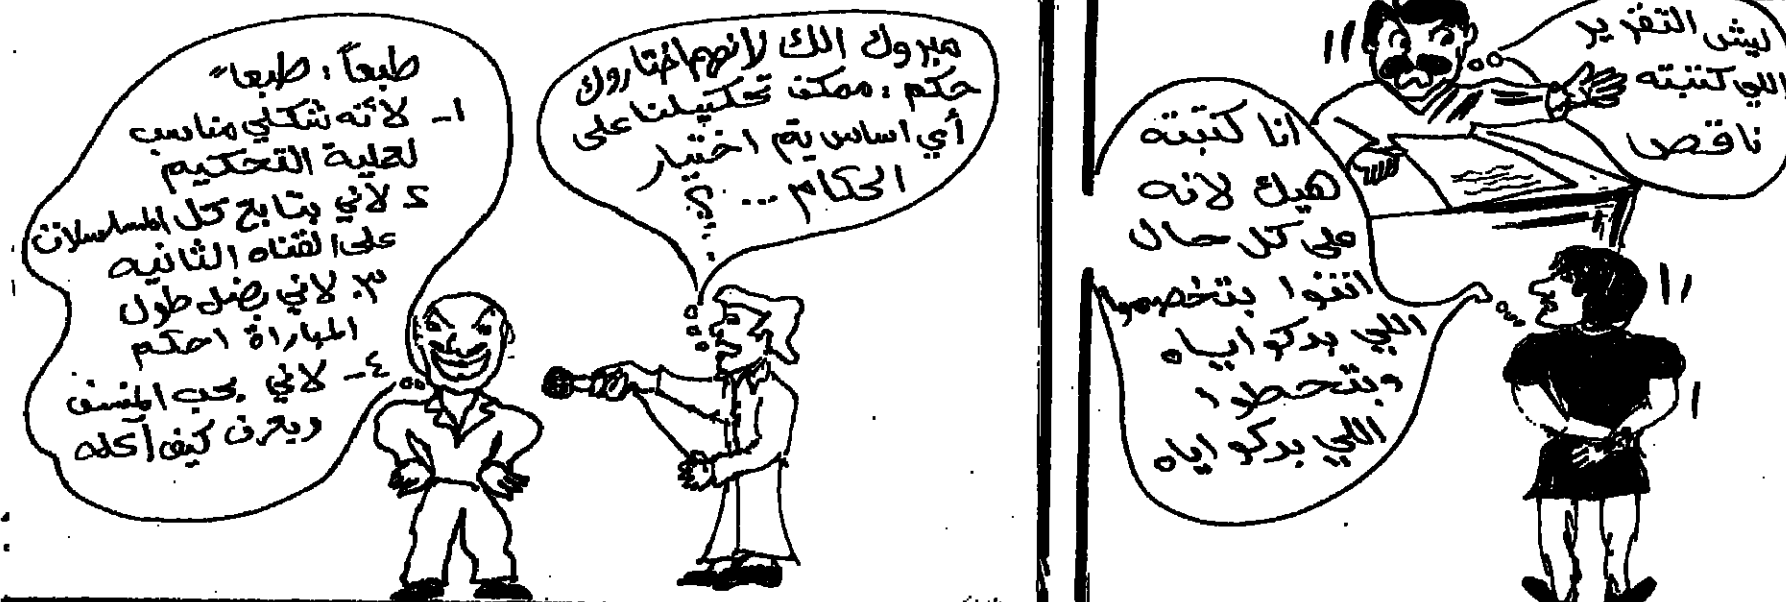 ليش التقرير
اللي كتبته
ناقص
انا كتبته
هيك لانه
على كل حال
انتوا بتخصموا
اللي بدكو اياه
وبتحطوا
اللي بدكو اياه
مبروك الك لانهم اختاروك
حكم : ممكن تحكيلنا على
أي اساس يتم اختيار
الحكام ... ؟
طبعاً : طبعاً
١- لأنه شكلي مناسب
لعملية التحكيم
٢ لاني بتابع كل المسلسلات
على القناه الثانيه
٣. لاني بضل طول
المباراة احكم
٤- لاني بحب المنسف
وبعرف كيف أكله